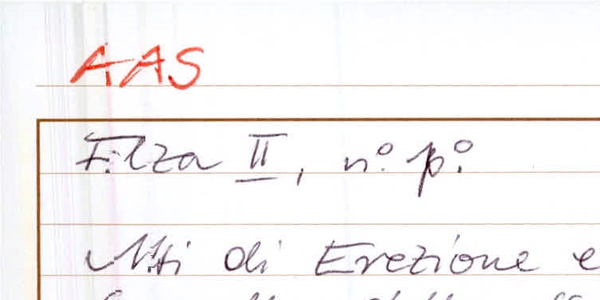 AAS
Filza II, n.° p.°
Atti di Erezione e